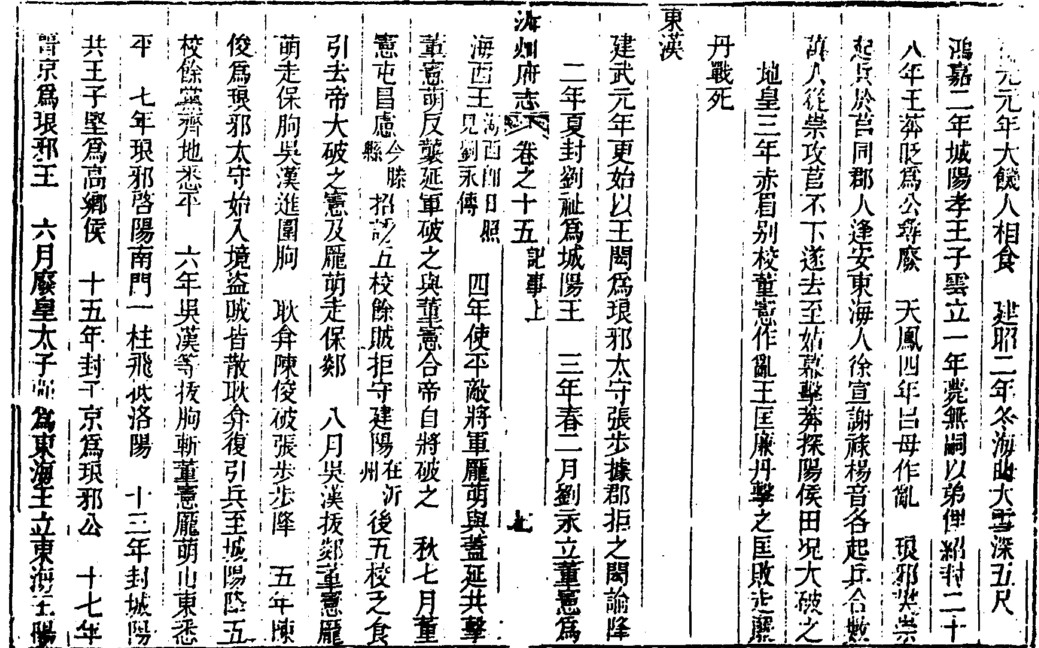 元元年大饑人相食　建昭二年冬海曲大雪深五尺
鴻嘉二年城陽孝王子雲立一年薨無嗣以弟俚紹封二十
八年王莽貶爲公尋廢　天鳳四年呂母作亂　琅邪樊崇
起兵於莒同郡人逢安東海人徐宣謝祿楊音各起兵合數
萬人從崇攻莒不下遂去至姑幕擊莽探陽侯田况大破之
地皇三年赤眉别校董憲作亂王匡廉丹擊之匡敗走廉
丹戰死
東漢
建武元年更始以王閎爲琅邪太守張步據郡拒之閎諭降
二年夏封劉祉爲城陽王　三年春二月劉永立董憲爲
沂州府志　卷之十五　記事上　七
海西王海西卽日照見劉永傳　四年使平敵將軍龐萌與蓋延共擊
董憲萌反襲延軍破之與董憲合帝自將破之　秋七月董
憲屯昌慮今滕縣招誘五校餘賊拒守建陽在沂州後五校乏食
引去帝大破之憲及龐萌走保郯　八月吳漢拔郯董憲龐
萌走保朐吳漢進圍朐　耿弇陳俊破張步步降　五年陳
俊爲琅邪太守始入境盗賊皆散耿弇復引兵至城陽降五
校餘黨齊地悉平　六年吳漢等拔朐斬董憲龐萌山東悉
平　七年琅邪啓陽南門一柱飛於洛陽　十三年封城陽
共王子堅爲高鄉侯　十五年封子京爲琅邪公　十七年
晋京爲琅邪王　六月廢皇太子彊爲東海王立東海王陽